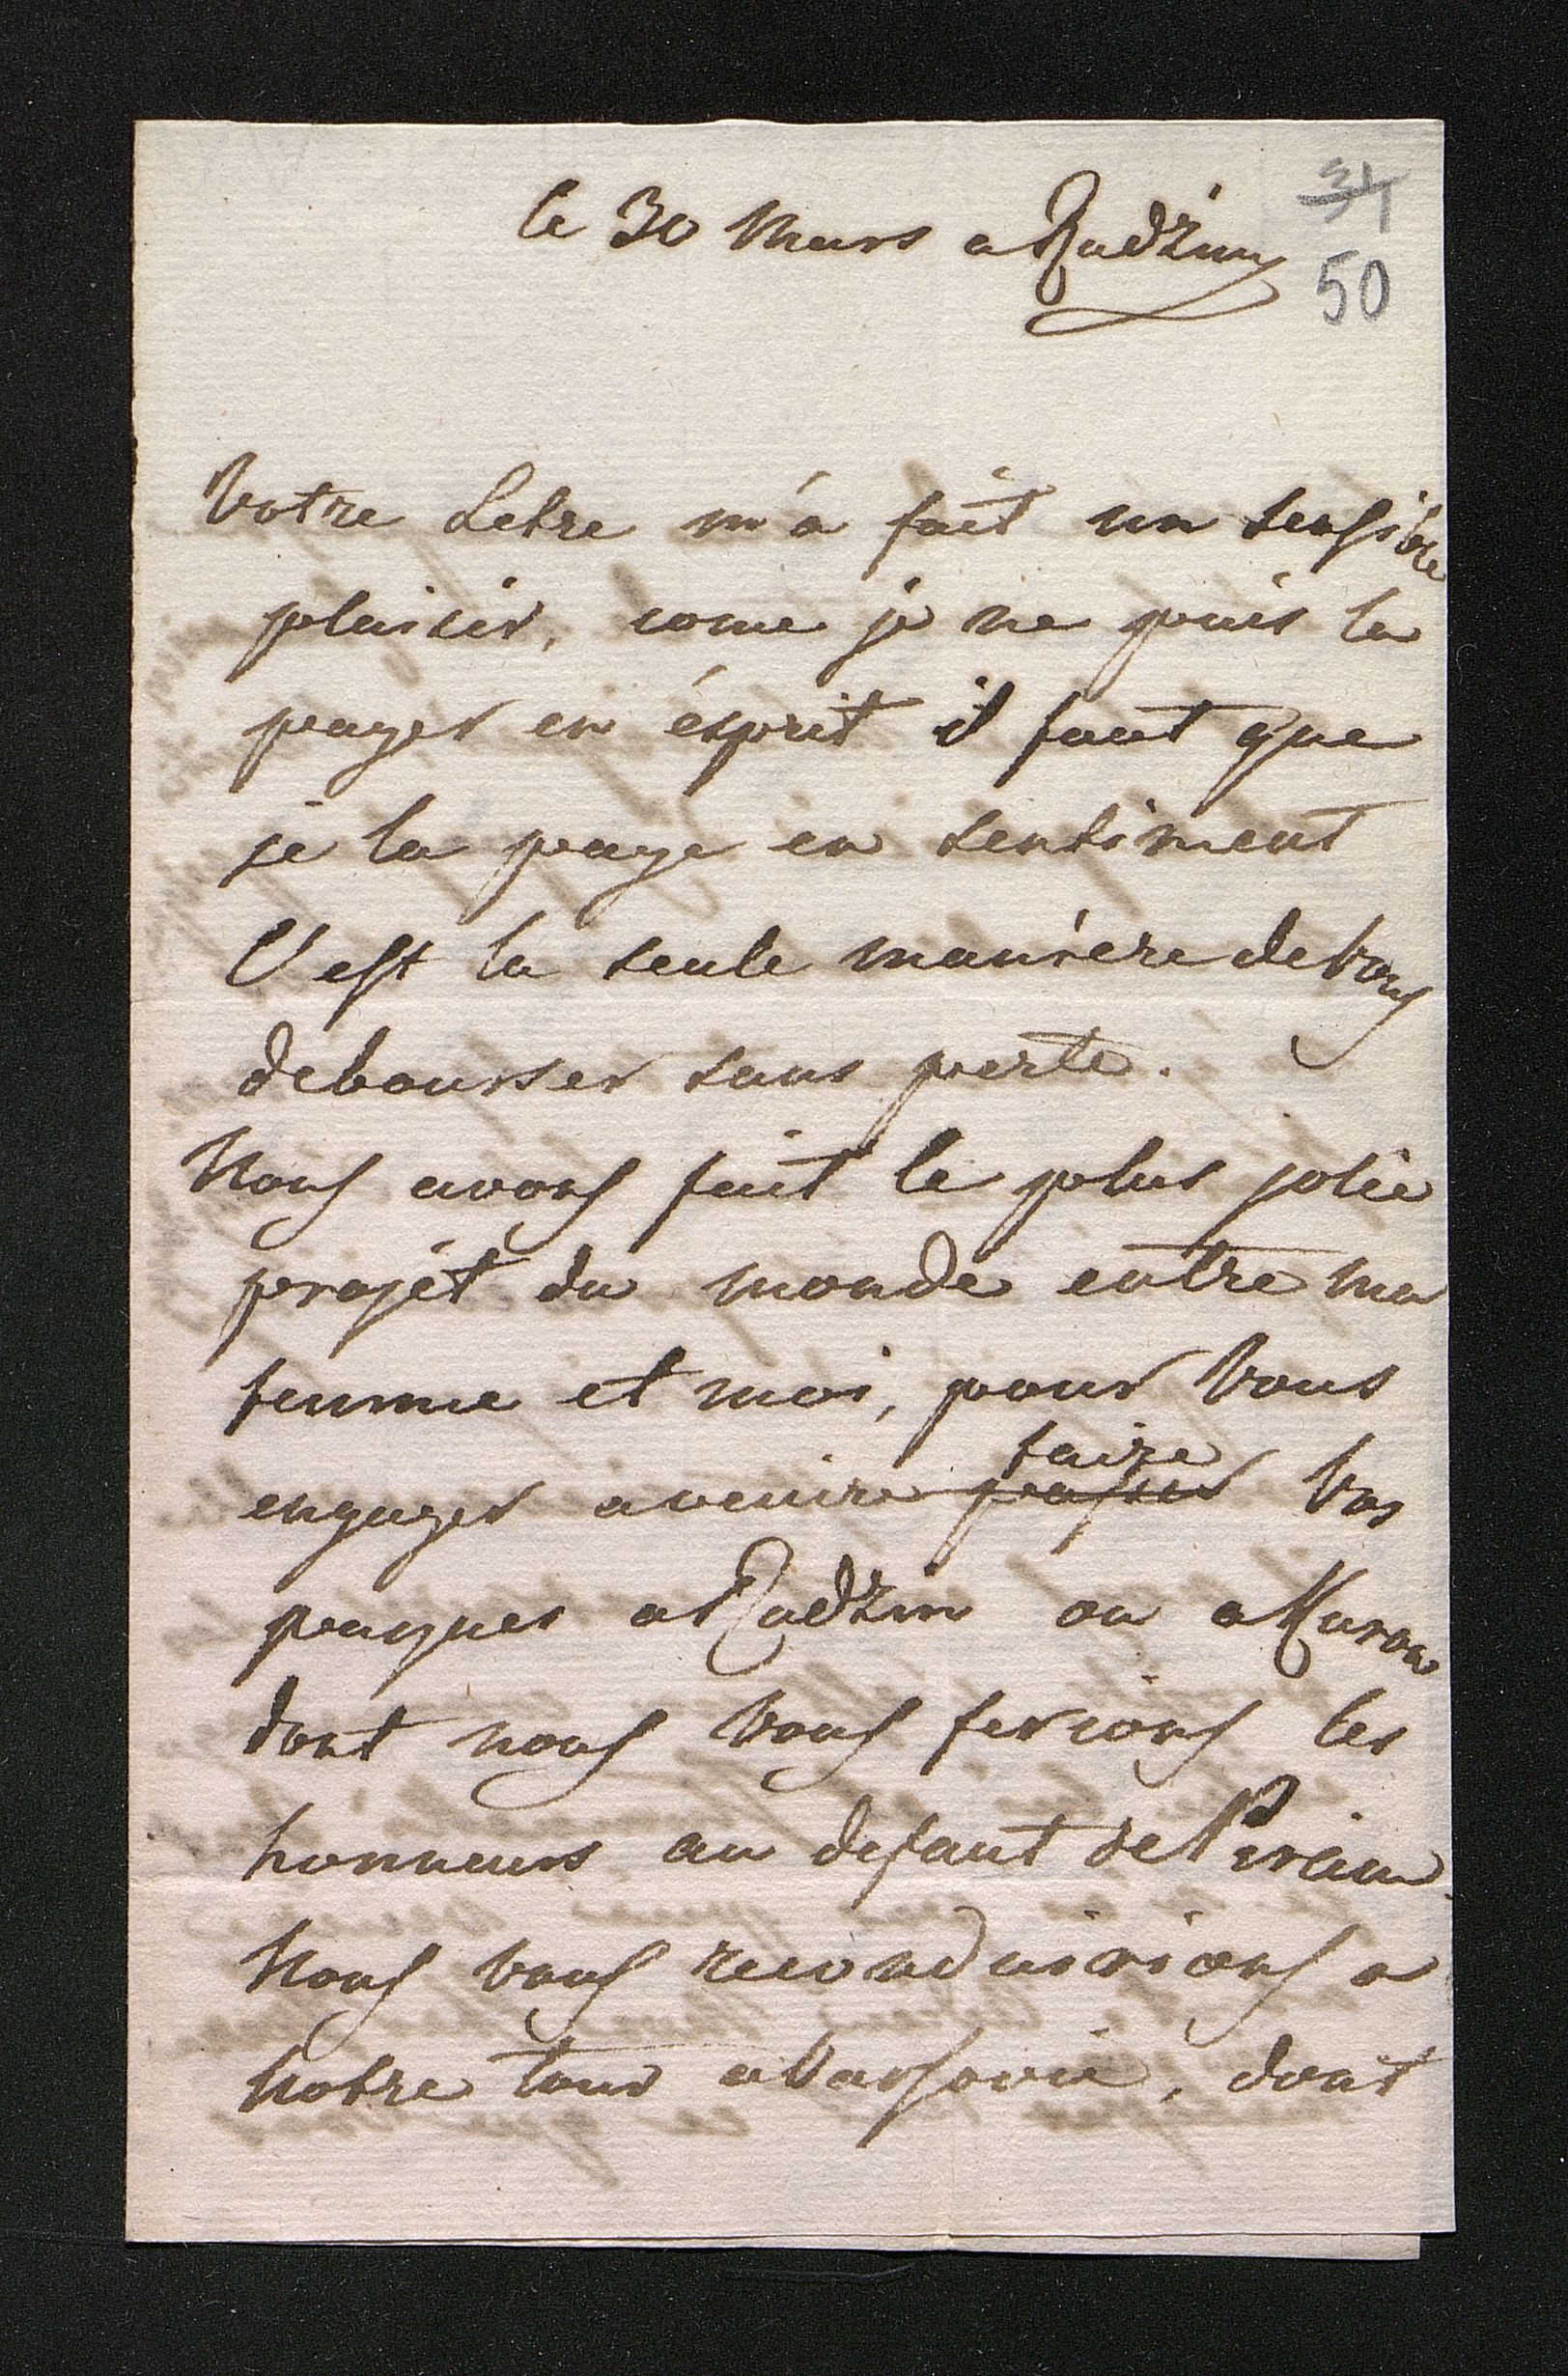 le 30 Mars a Radzin
34
50
Votre Letre m'a fait un sensible
plaisir, come je ne puis la
payer en ésprit il faut que
je la paye en sentiment
C'est la seule maniere de vous
debourser sans perte.
Nous avons fait le plus jolie
projét du monde entre ma
femme et moi, pour Vous
engager a venire passer faire Vos
paques a Radzin ou a Kurow
dont nous Vous ferions les
honneurs au defaut de
Nous vous reconduirions a
Notre tour a Varsovie, dont